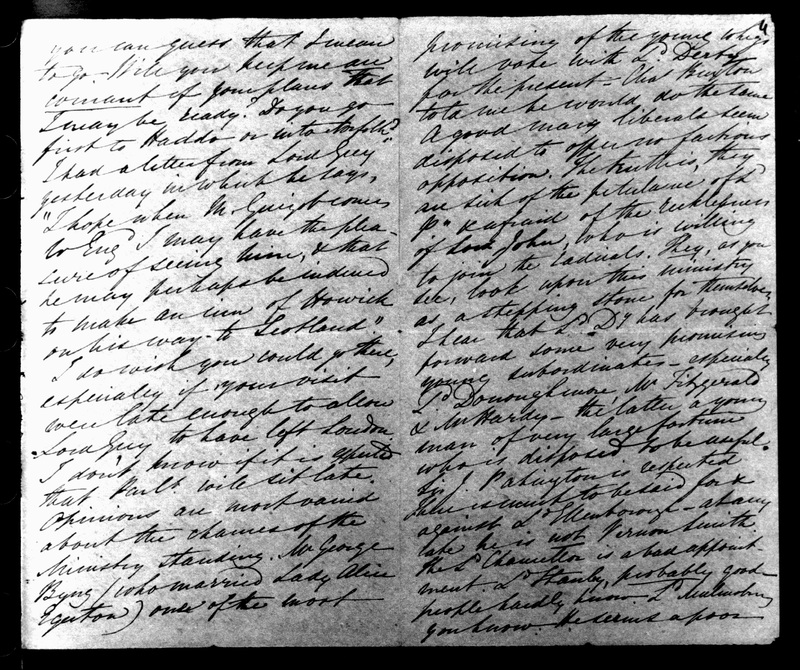 you can guess that I mean
to go. Will you keep me au
courant of your plans that
I may be ready? Do you go
first to Haddo or into Norfolk?
I had a letter from Lord Grey
yesterday in which he says,
"I hope when M. Guizot comes
to Eng I may have the plea-
sure of seeing him, & that
he may perhaps be induced
to make an inn of Howick
on his way to Scotland"
I do wish you could go there,
especially if your visit
were late enough to allow
Lord Grey to have left London
I don't know if it is expected
that Parlt. will sit late.
Opinions are most varied
about the chances of the
Ministry standing. Mr George
Byng (who married Lady Alice
Egerton) one of the most
4
promising of the young whigs
will vote with Ld. Derby
for the present - Chas Buxton
told me he would do the same
A good many liberals seem
disposed to offer no factious
opposition. The truth is, they
are sick of the petulance of Ld
P" & afraid of the recklessness
of Lord John, who is willing
to join the Radicals. They, as you
see, look upon this ministry
as a stepping stone for themselves
I hear that Ld. Dy has brought
forward some very promising
young subordinates - especially
Ld Donoughmore, Mr Fitzgerald
& Mr Hardy - the latter a young
man of very large fortune
who is disposed to be useful.
Sir J. Pakington is respected
There is much to be said for &
against Ld Ellenborough - at any
rate he is not Vernon Smith.
The Ld Chancellor is a bad appoint-
ment. Ld Stanley, probably good -
people hardly know Ld Malmesbury
you know. He seems a poor